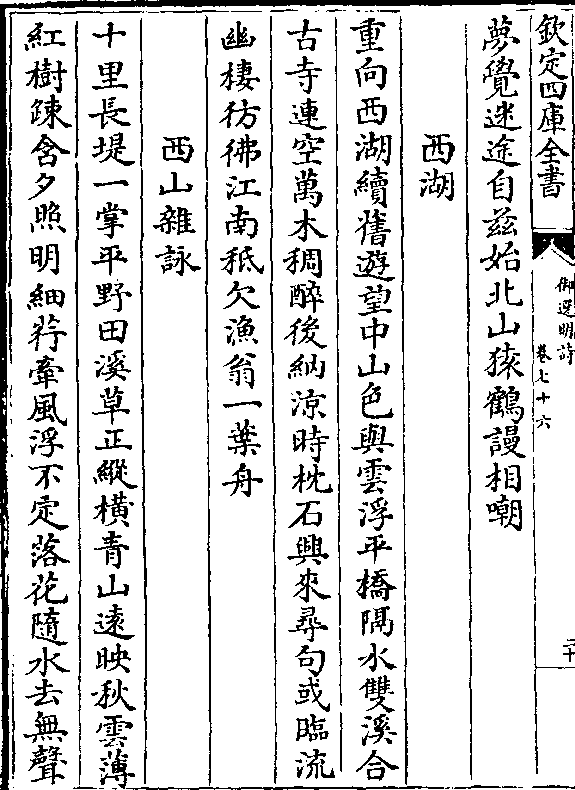 欽定四庫全書
御選明詩
卷七十六
二十
夢覺迷途自兹始北山猿鶴謾相嘲
西湖
重向西湖續舊遊望中山色與雲浮平橋隔水雙溪合
古寺連空萬木稠醉後納涼時枕石興來尋句或臨流
幽棲彷彿江南秪欠漁翁一葉舟
西山雜詠
十里長堤一掌平野田溪草正縱橫青山遠映秋雲薄
紅樹踈含夕照明細荇牽風浮不定落花隨水去無聲